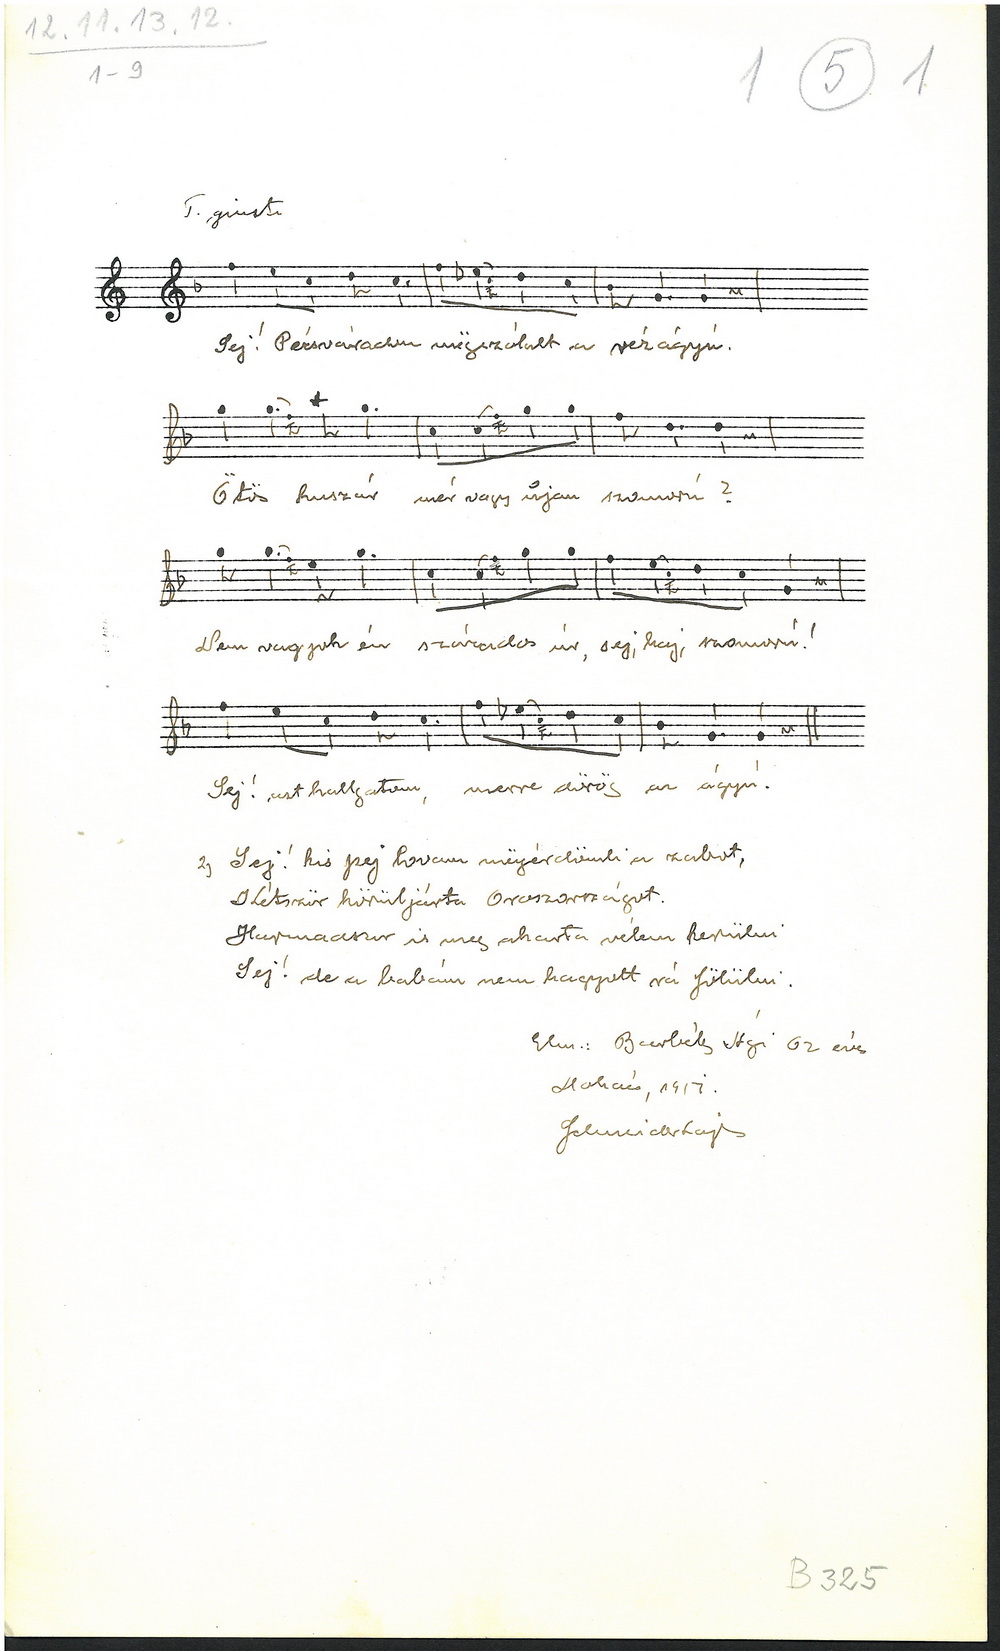 12. 11. 13. 12.
1-9
1 5 1
T. giusto
Sej! Pécsváradon mëgszólalt a rézágyú.
Ötös huszár mér vagy ojan szomorú?
Nem vagyok én százados úr, sej, haj, szomorú!
Sej! azt hallgatom, merre dörög az ágyú.
2, Sej! kis pej lovam mëgérdömli a zabot,
Kétszër körüljárta Oroszországot.
Harmadszor is meg akarta vélem kerülni
Sej! de a babám nem hagyott rá fölülni.
Elm.: Ági 62 éves
Mohács,
Schneider Lajos
B 325